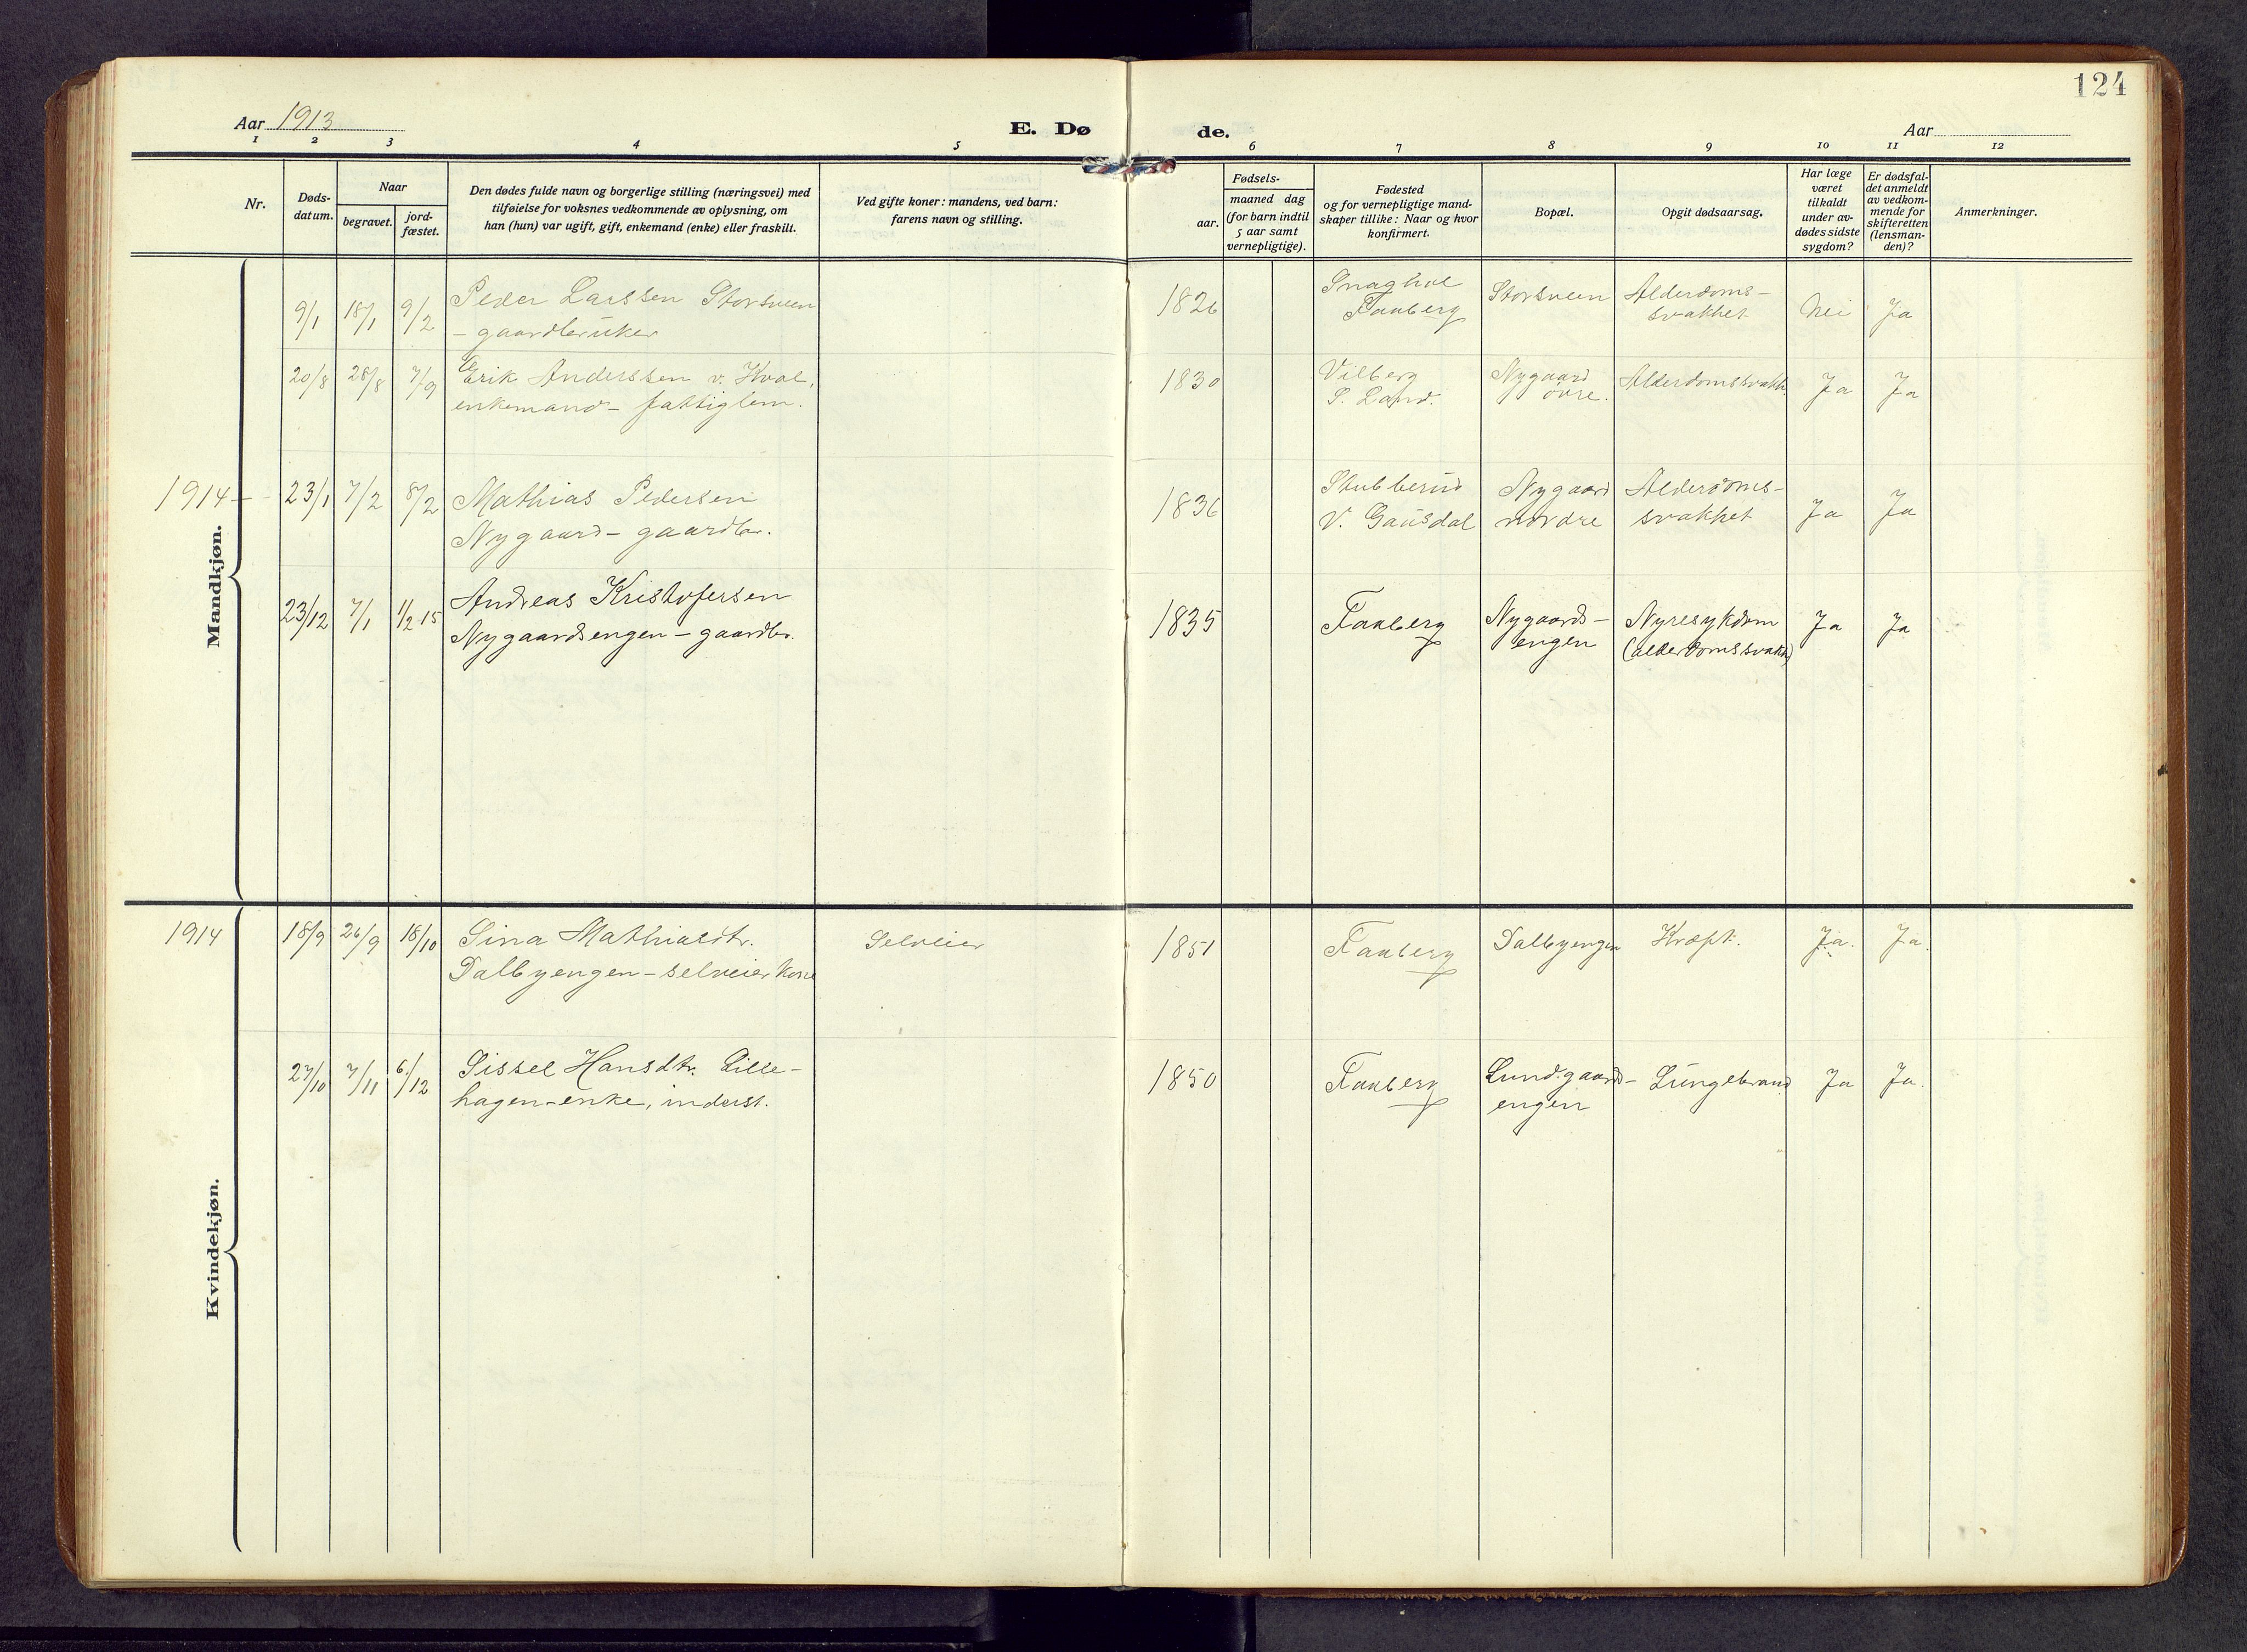 124
Aar 1913
E. Dø
de.
Aar
1 2 3 4 5 6 7 8 9 10 11 12
Nr.
Døds-
datum.
Naar
begravet.
jord-
fæstet.
Den dødes fulde navn og borgerlige stilling (næringsvei) med
tilføielse for voksnes vedkommende av oplysning, om
han (hun) var ugift, gift, enkemand (enke) eller fraskilt.
Ved gifte koner: mandens, ved barn:
farens navn og stilling.
Fødsels-
aar.
maaned dag
(for barn indtil
5 aar samt
vernepligtige).
Fødested
og for vernepligtige mand-
skaper tillike: Naar og hvor
konfirmert.
Bopæl.
Opgit dødsaarsag.
Har læge
været
tilkaldt
under av-
dødes sidste
sygdom?
Er dødsfal-
det anmeldt
av vedkom-
mende for
skifteretten
(lensman-
den)?
Anmerkninger.
Mandkjøn.
9/1 18/1 9/2 Peder Larssen Storsveen
- gaardbruker
1826
Snaghol
Faaberg
Storsveen
Alderdoms-
svakhet
Nei Ja
20/8 28/8 7/9 Erik Anderssen v. Hval,
enkemand - fattiglem.
1830
Vilberg
S. Land.
Nygaard
övre.
Alderdomssvakh.
Ja Ja
1914 - 23/1 7/2 8/2 Mathias Pedersen
Nygaard - gaardbr.
1836
Stubberud
V. Gausdal
Nygaard
nordre
Alderdoms-
svakhet
Ja Ja
23/12 7/1 1/2 15 Andreas Kristofersen
Nygaardsengen - gaardbr.
1835
Faaberg
Nygaards-
engen
Nyresykdom
(alderdomssvakh)
Ja Ja
Kvindekjøn.
1914 18/9 26/9 18/10 Sina Mathiasdtr.
Dalbyengen - selveier kone
Selveier
1851
Faaberg
Dalbyengen
Kræft.
Ja. Ja.
27/10 7/11 6/12 Sissel Hansdtr. Lille-
hagen - enke, inderst.
1850
Faaberg
Lundgaards-
engen
Lungebrand
Ja Ja.